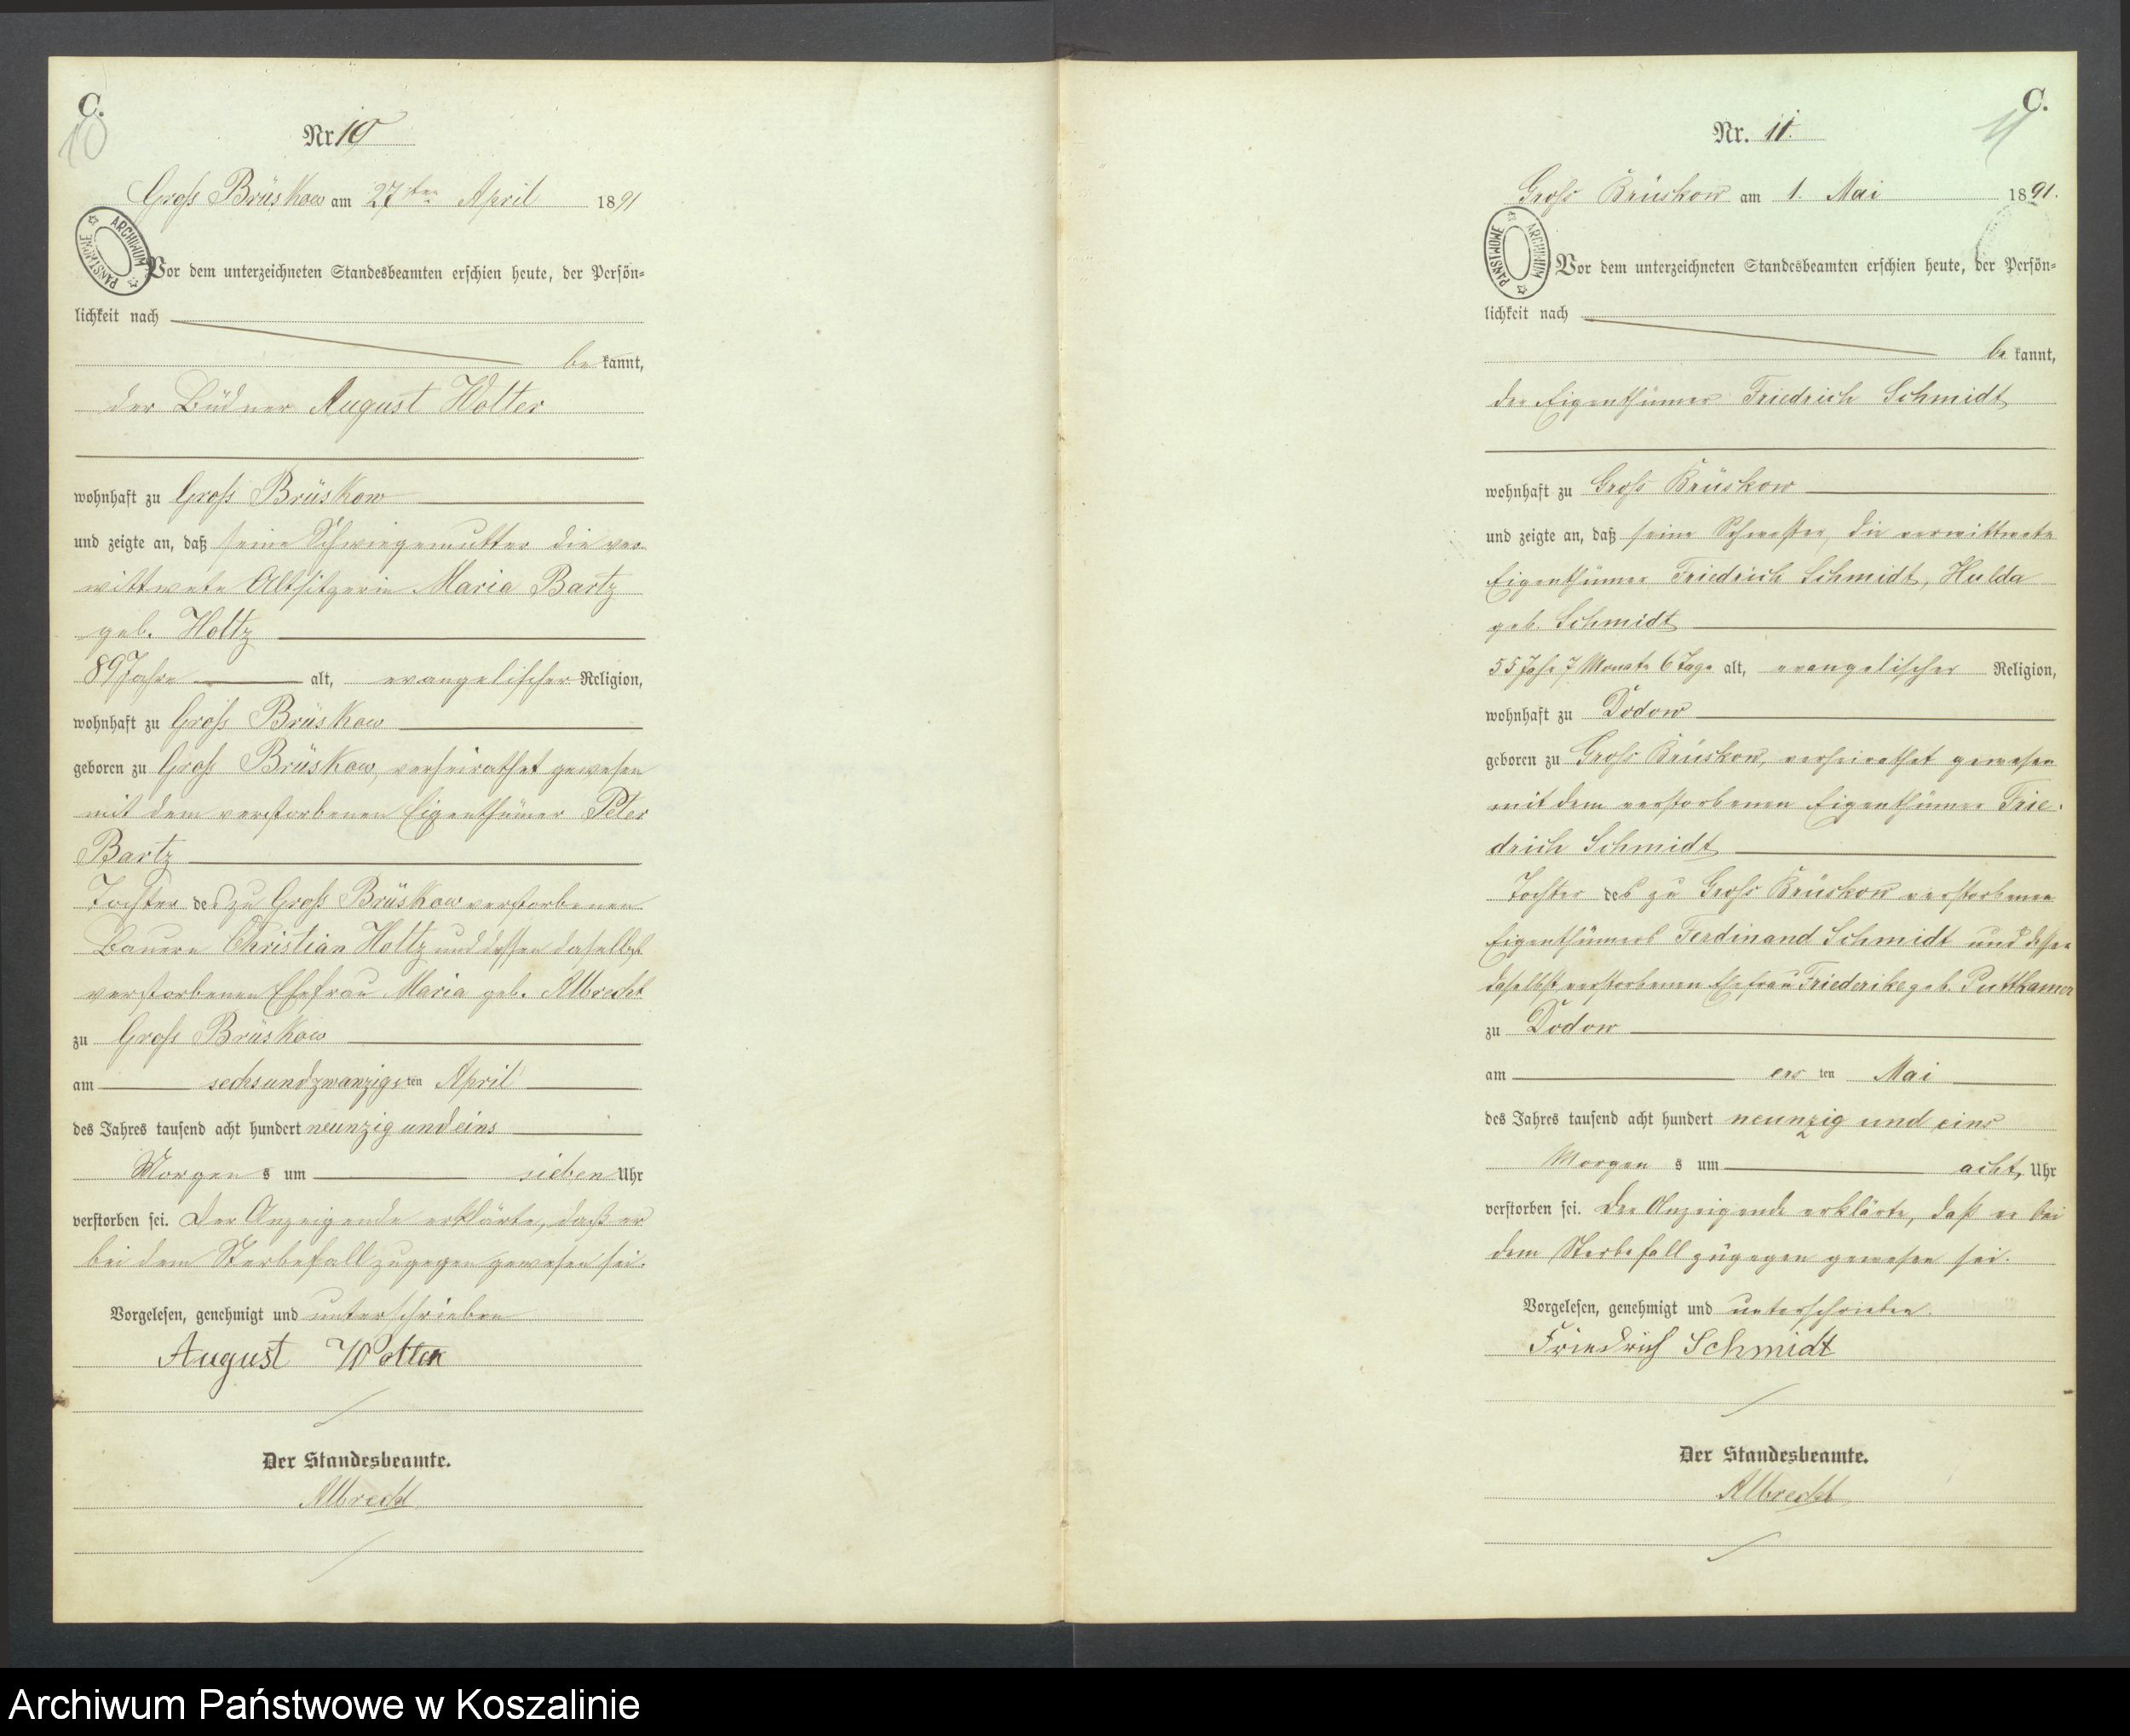 C.
10
Nr 10
Groß Brüskow am 27ten April 1891
ARCHIWUM PAŃSTWOWE
Vor dem unterzeichneten Standesbeamten erschien heute, der Persön=
lichkeit nach
be kannt,
der Büdner August Wolter
wohnhaft zu Groß Brüskow
und zeigte an, daß seine Schwiegermutter die ver
wittwete Altsitzerin Maria Bartz
geb. Holtz
89 Jahre alt, evangelischer Religion,
wohnhaft zu Groß Brüskow
geboren zu Groß Brüskow, verheirathet gewesen
mit dem verstorbenen Eigenthümer Peter
Bartz
Tochter des zu Groß Brüskow verstorbenen
Bauern Christian Holtz und dessen daselbst
verstorbenen Ehefrau Maria geb. Albrecht
zu Groß Brüskow
am sechsundzwanzigsten April
des Jahres tausend acht hundert neunzig und eins
Morgens um sieben Uhr
verstorben sei. Der Anzeigende erklärte, daß er
bei dem Sterbefall zugegen gewesen sei.
Vorgelesen, genehmigt und unterschrieben
August Wolter
Der Standesbeamte.
Albrecht
C.
11
Nr. 11.
Groß Brüskow am 1. Mai 1891.
ARCHIWUM PAŃSTWOWE
Vor dem unterzeichneten Standesbeamten erschien heute, der Persön=
lichkeit nach
be kannt,
der Eigenthümer Friedrich Schmidt
wohnhaft zu Groß Brüskow
und zeigte an, daß seine Schwester, die verwittwete
Eigenthümer Friedrich Schmidt, Hulda
geb. Schmidt
55 Jahr 7 Monate 6 Tage alt, evangelischer Religion,
wohnhaft zu Dodow
geboren zu Groß Brüskow, verheirathet gewesen
mit dem verstorbenen Eigenthümer Frie=
drich Schmidt
Tochter des zu Groß Brüskow verstorbenen
Eigenthümers Ferdinand Schmidt und dessen
daselbst verstorbenen Ehefrau Friederike geb. Puttkamer
zu Dodow
am ersten Mai
des Jahres tausend acht hundert neunzig und eins
Morgens um acht Uhr
verstorben sei. Der Anzeigende erklärte, daß er bei
dem Sterbefall zugegen gewesen sei.
Vorgelesen, genehmigt und unterschrieben.
Friedrich Schmidt
Der Standesbeamte.
Albrecht
Archiwum Państwowe w Koszalinie